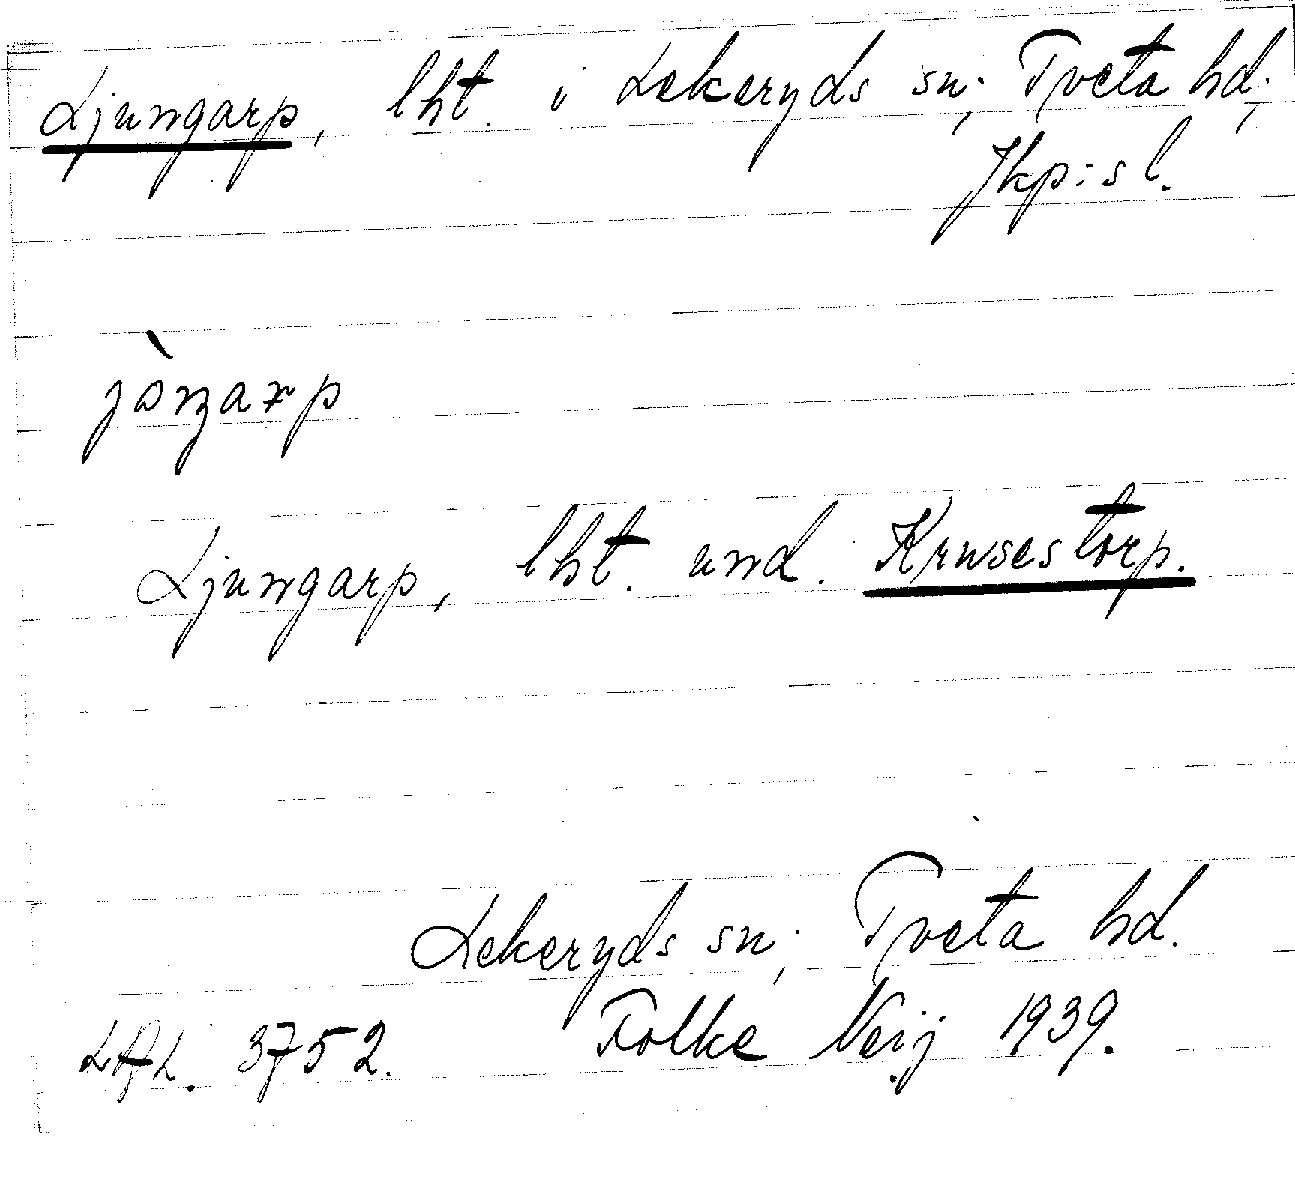 Ljungarp, lht. i Lekeryds sn; Tveta hd;
Jkp:s l.
jòŋarp
Ljungarp, lht. und. Krusestorp.
Lekeryds sn; Tveta hd.
3752. Folke Neij 1939.